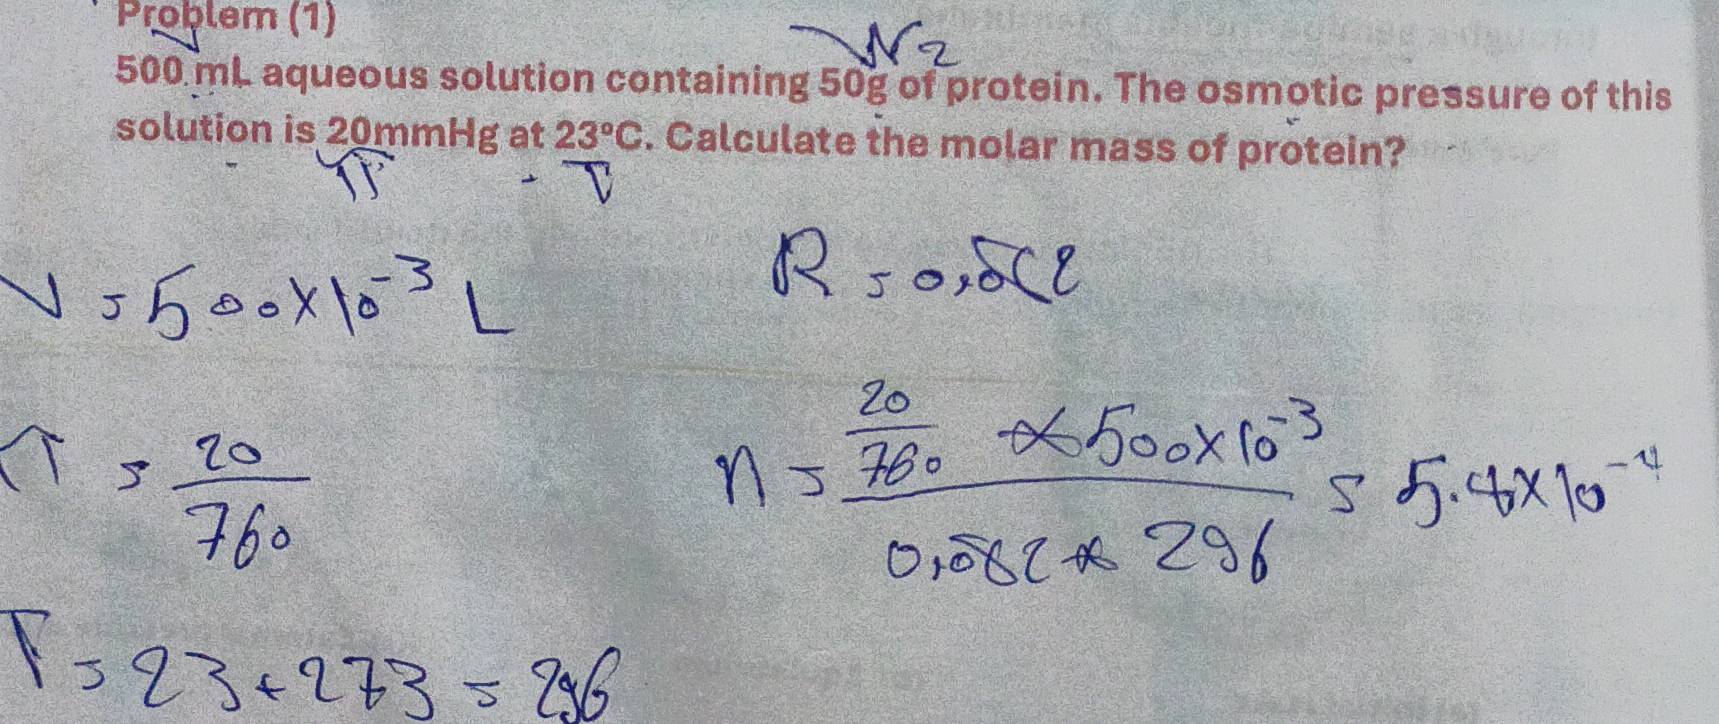 Problem (1)
W2
500 mL aqueous solution containing 50g of protein. The osmotic pressure of this
solution is 20mmHg at 23°C. Calculate the molar mass of protein?
π T
V = 500x10⁻³ L
R = 0,082
π = 20/760
n = 20/760 * 500x10⁻³ / 0,082 * 296 = 5.4x10⁻⁴
T = 23+273 = 296